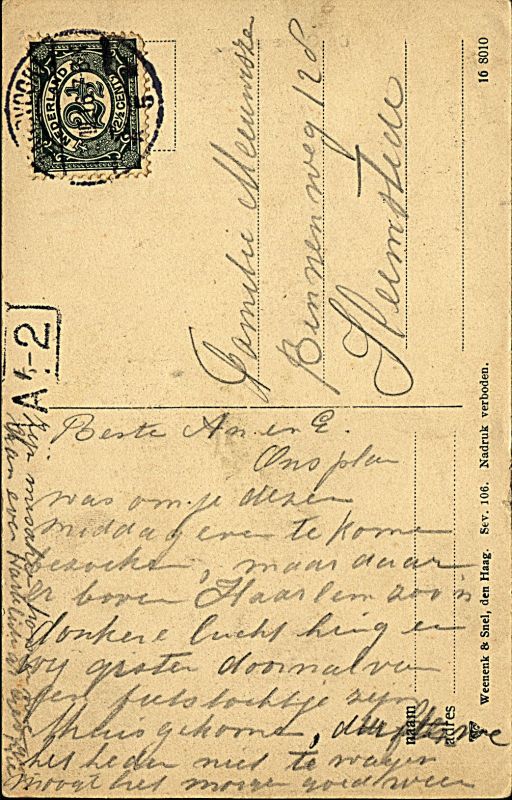 NEDERLAND
2½
2½ CENT
Familie Meeuwisse
Binnenweg 128
Heemstede
16 8010
A.-2
Beste An en E.
Ons plan
was om je dezen
middag even te komen
bezoeken, maar daar
er boven Haarlem zoo'n
donkere lucht hing en
wy gister doornat van
een fietstochtje zyn
thuisgekomen, durfden we
het heden niet te wagen
Mogt het morgen goed weer
naam
adres
Weenenk & Snel, den Haag. Sev. 106. Nadruk verboden.